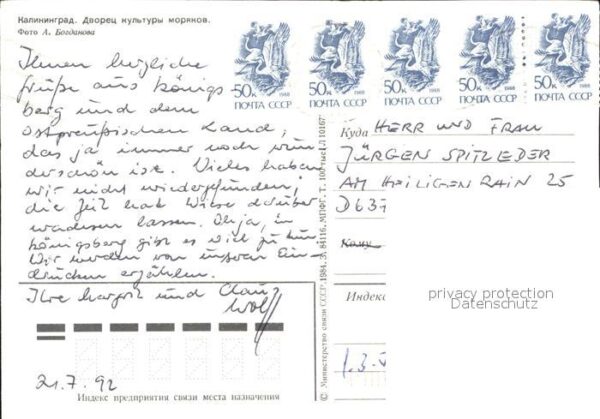 Калининград. Дворец культуры моряков.
Фото А. Богданова
Ihnen herzliche
Grüße aus Königs
berg und dem
ostpreußischen Land,
das ja immer noch wun
derschön ist. Vieles haben
wir nicht wiedergefunden;
die Zeit hat Wiese darüber
wachsen lassen. Oh ja, in
Königsberg gibt es viel zu tun
Wir werden von unseren Ein-
drücken erzählen.
Ihre Margot und Claus
Wolf
21.7.92
Индекс предприятия связи места назначения
50к 1988 ПОЧТА СССР
50к 1988 ПОЧТА СССР
50к 1988 ПОЧТА СССР
50к 1988 ПОЧТА СССР
50к 1988 ПОЧТА СССР
© Министерство связи СССР. 1984. З. 84116. МПФГ. Т. 100 тыс. Л 10167
Куда HERR UND FRAU
JÜRGEN SPITZLEDER
AM HEILIGEN RAIN 25
D637
Кому
Индекс
privacy protection
Datenschutz